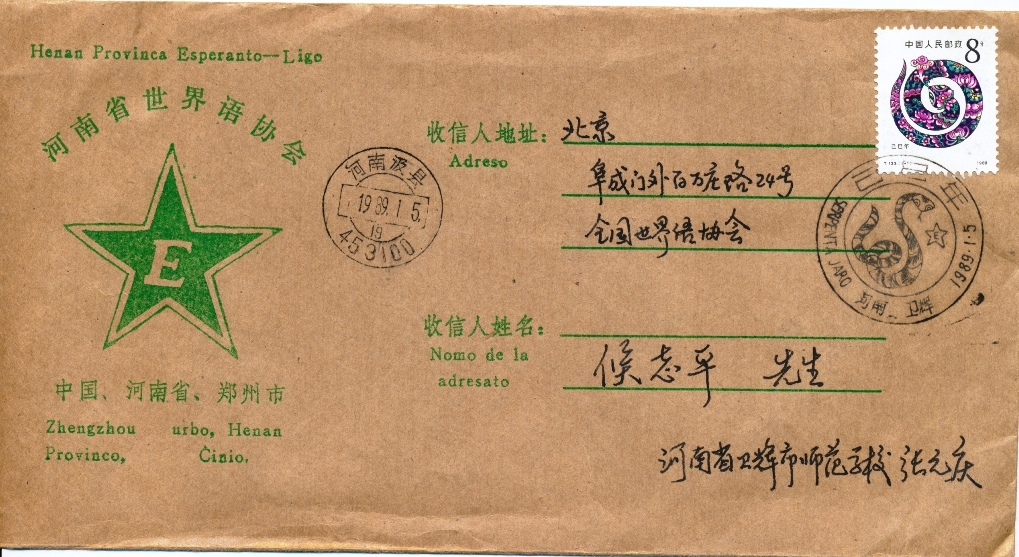 Henan Provinca Esperanto—Ligo
河南省世界语协会
E
中国、河南省、郑州市
Zhengzhou urbo, Henan
Provinco, Ĉinio.
河南汲县
1989.1.5.
19
453100
收信人地址：
Adreso
北京
阜成门外百万庄路24号
全国世界语协会
收信人姓名：
Nomo de la
adresato
侯志平 先生
河南省卫辉市师范学校 张元庆
中国人民邮政 8分
己巳年
1989
己巳年
SERPENTA JARO
河南 卫辉
1989.1.5